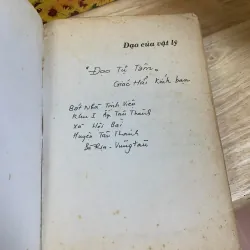 Đạo của vật lý
"Đạo Tự Tâm"
Giác Hải Kính bạn
Bát Nhã Trình Viên
Khu I Ấp Tân Thành
Xã Hội Bài
Huyện Tân Thành
Bà Rịa - Vũng Tàu